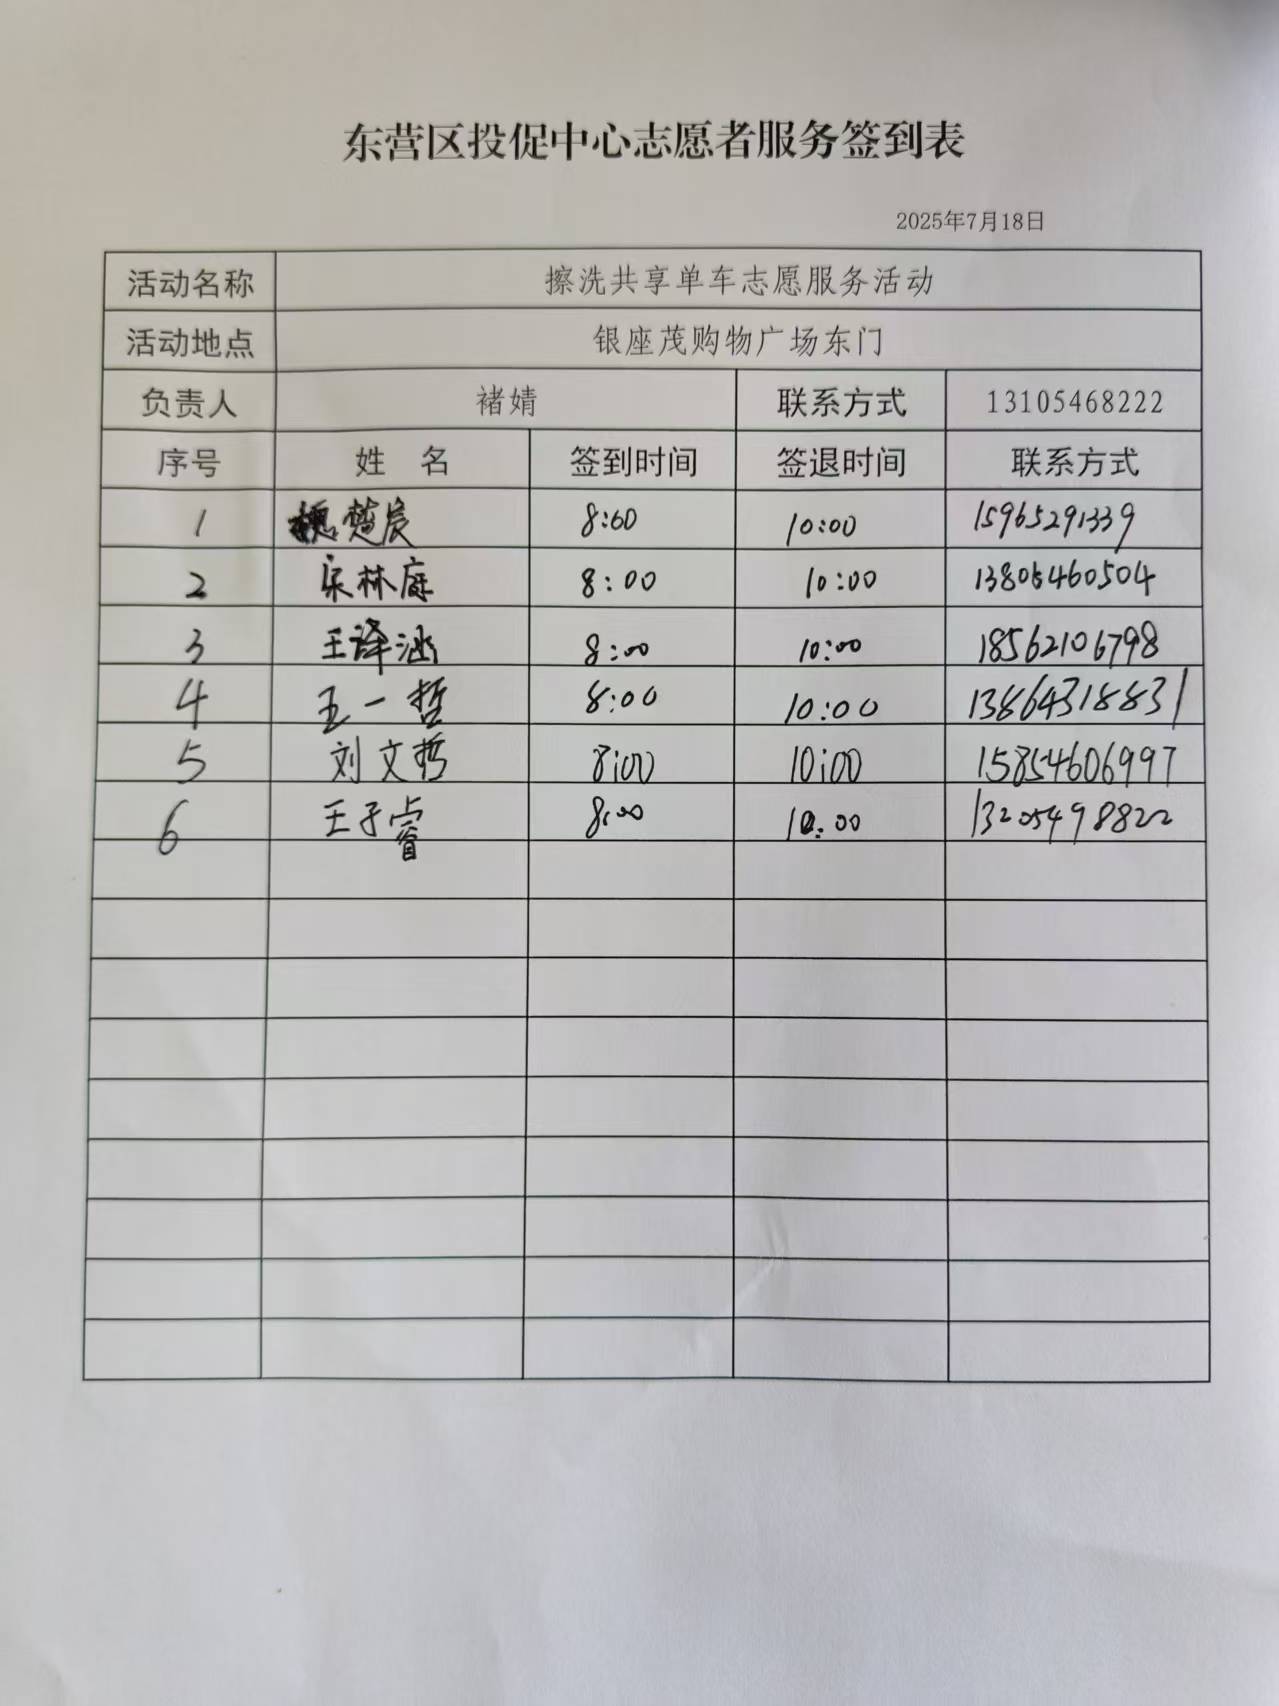 东营区投促中心志愿者服务签到表
2025年7月18日
活动名称 擦洗共享单车志愿服务活动
活动地点 银座茂购物广场东门
负责人 褚婧 联系方式 13105468222
序号 姓 名 签到时间 签退时间 联系方式
1 楚辰 8:00 10:00 15965291339
2 宋林庭 8:00 10:00 13805460504
3 王译涵 8:00 10:00 18562106798
4 王一哲 8:00 10:00 13864318831
5 刘文哲 8:00 10:00 15854606997
6 王子睿 8:00 10:00 13205498822